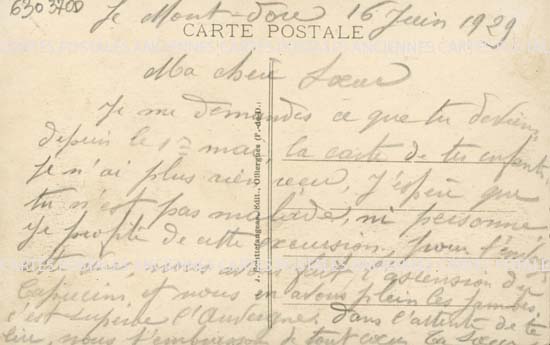 6303700
Le Mont-Dore 16 Juin 1929
CARTE POSTALE
Ma chère Sœur
Je me demandes ce que tu deviens
depuis le 1er mai, la carte de tes enfants
je n'ai plus rien reçu, J'espère que
tu n'est pas malade, ni personne
je profite de cette excursion, pour
nous avons fait l'ascension des
Capucins et nous en avons plein les jambes
c'est superbe l'Auvergne. Dans l'attente de te
lire, nous t'embrassons de tout cœur ta Sœur
J. Edit., Olliergues (P.-de-D.)
CARTES POSTALES ANCIENNES